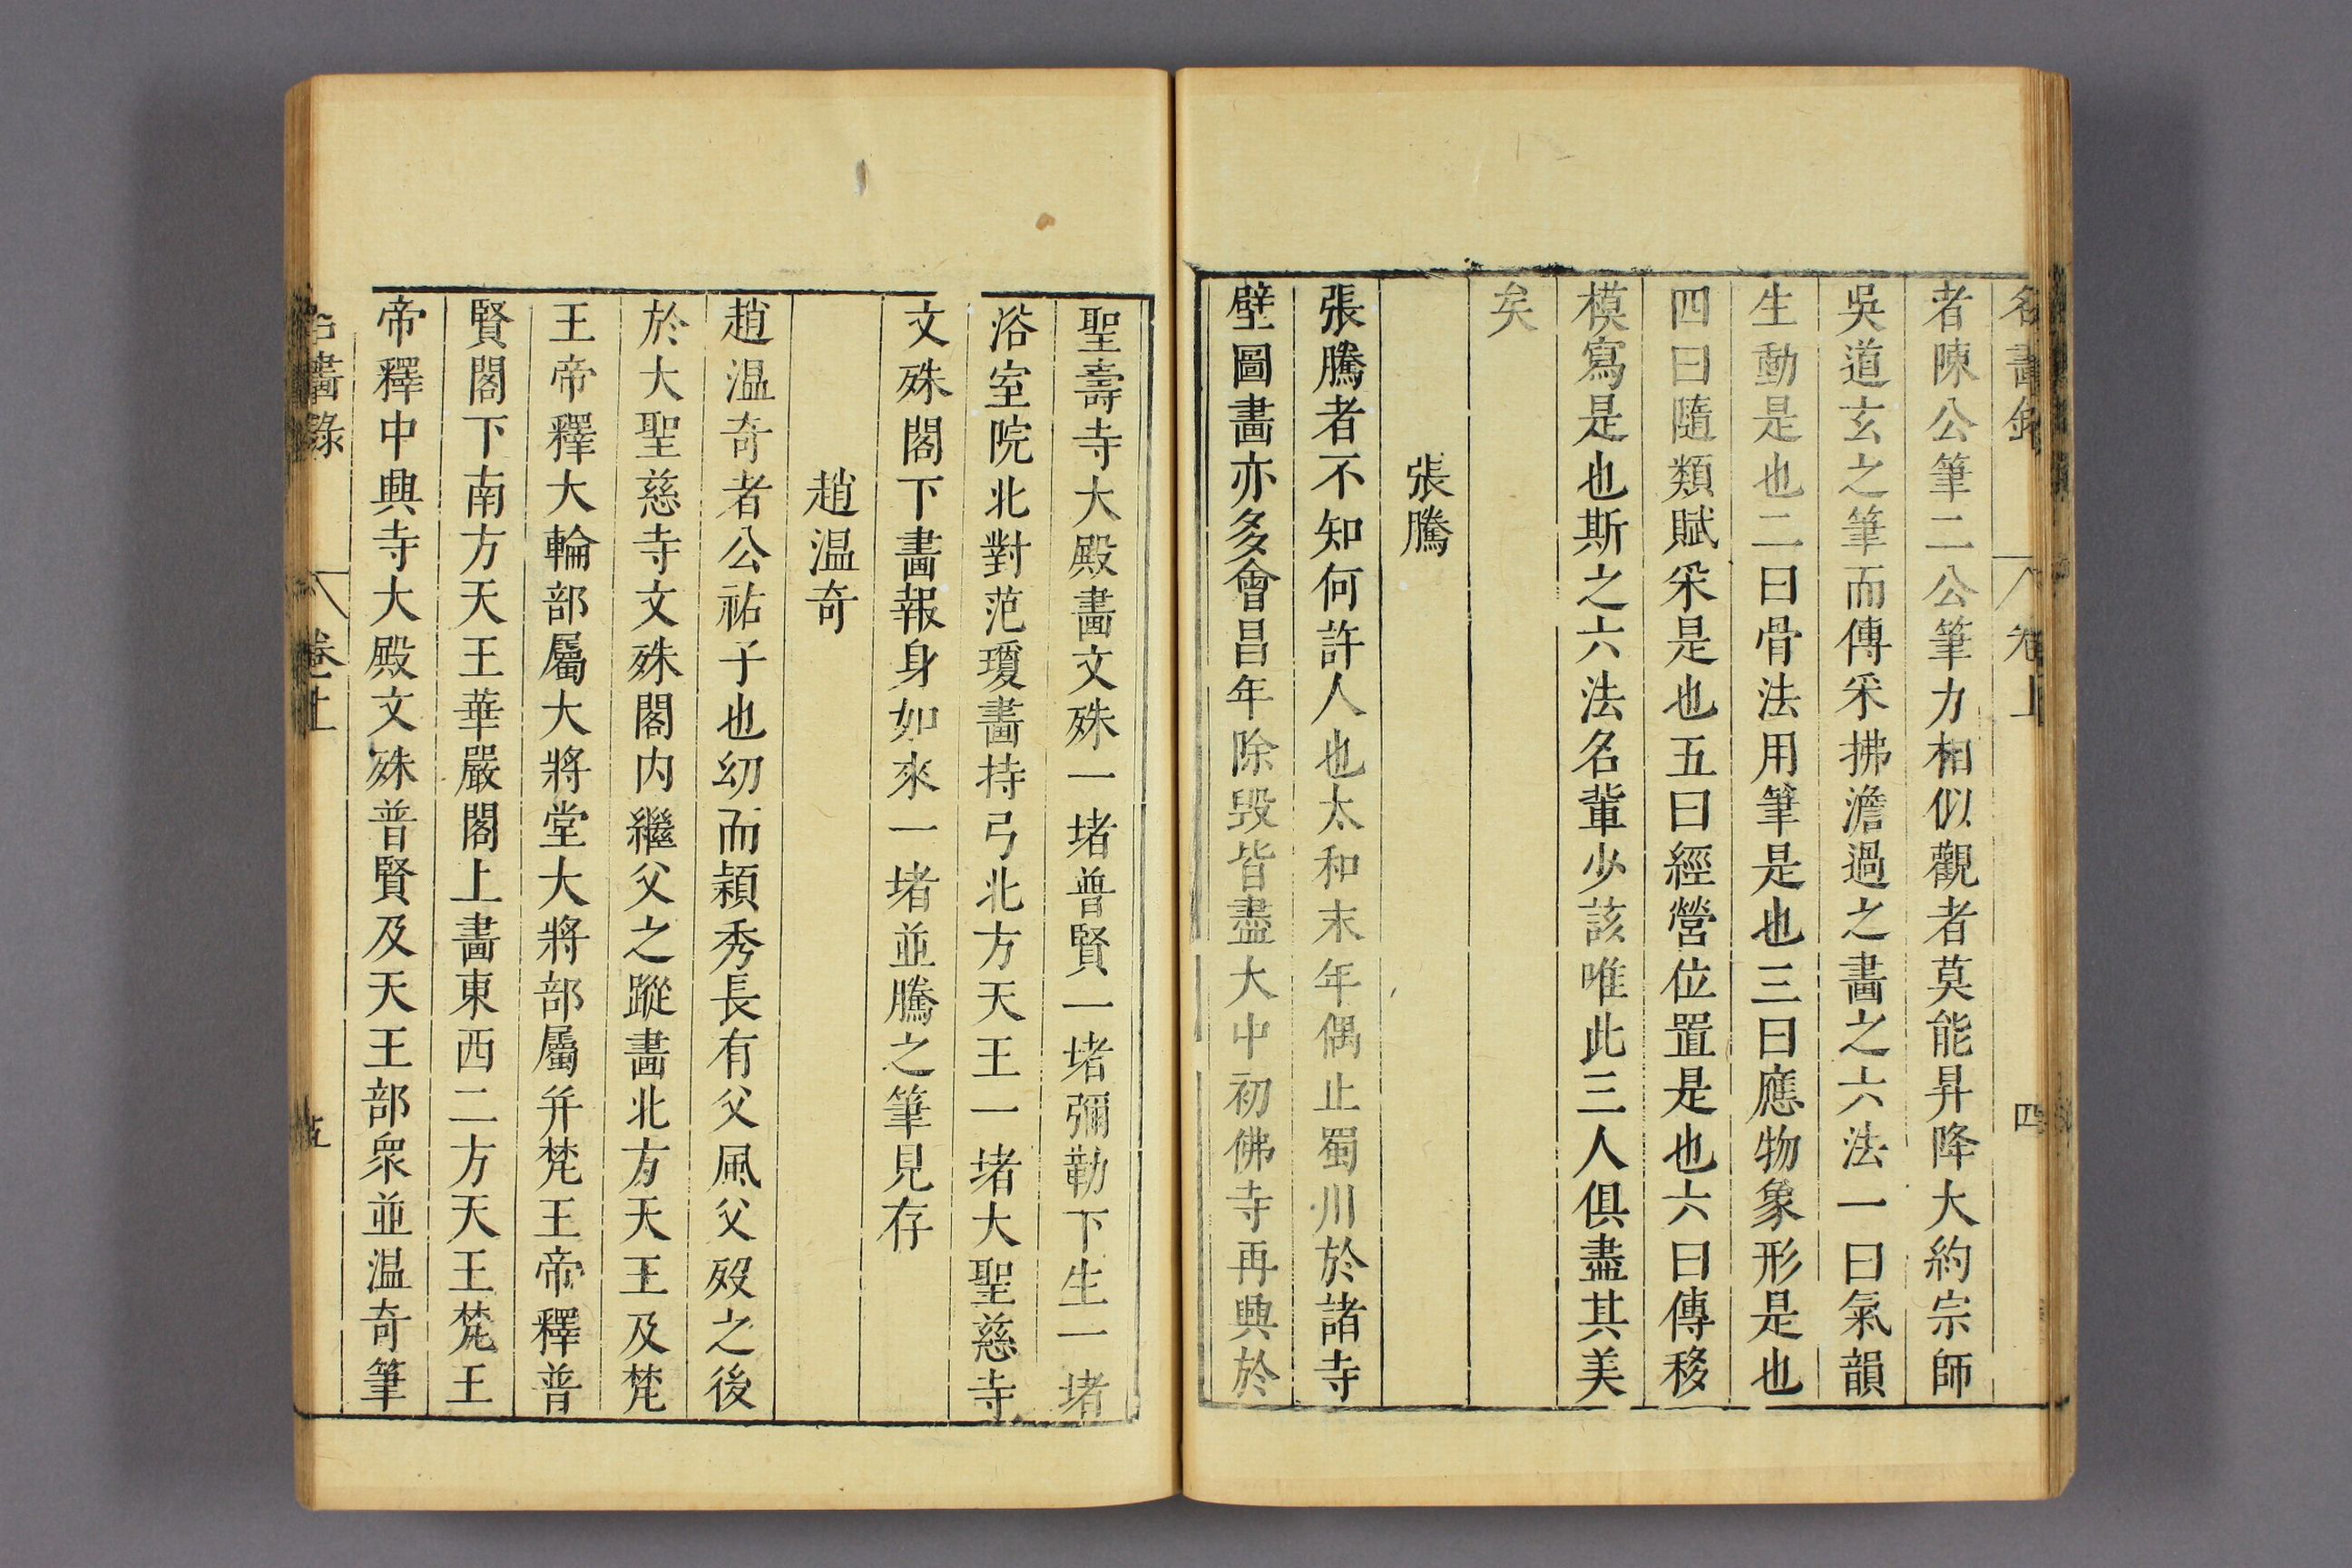 名畫錄 卷上 四
者陳公筆二公筆力相似觀者莫能昇降大約宗師
吳道玄之筆而傳采拂澹過之畫之六法一曰氣韻
生動是也二曰骨法用筆是也三曰應物象形是也
四曰隨類賦采是也五曰經營位置是也六曰傳移
模寫是也斯之六法名輩少該唯此三人俱盡其美
矣
張騰
張騰者不知何許人也太和末年偶止蜀川於諸寺
壁圖畫亦多會昌年除毀皆盡大中初佛寺再興於
聖壽寺大殿畫文殊一堵普賢一堵彌勒下生一堵
浴室院北對范瓊畫持弓北方天王一堵大聖慈寺
文殊閣下畫報身如來一堵並騰之筆見存
趙温奇
趙温奇者公祐子也幼而穎秀長有父風父歿之後
於大聖慈寺文殊閣内繼父之蹤畫北方天王及梵
王帝釋大輪部屬大將堂大將部屬并梵王帝釋普
賢閣下南方天王華嚴閣上畫東西二方天王梵王
帝釋中興寺大殿文殊普賢及天王部眾並温奇筆
名畫錄 卷上 五